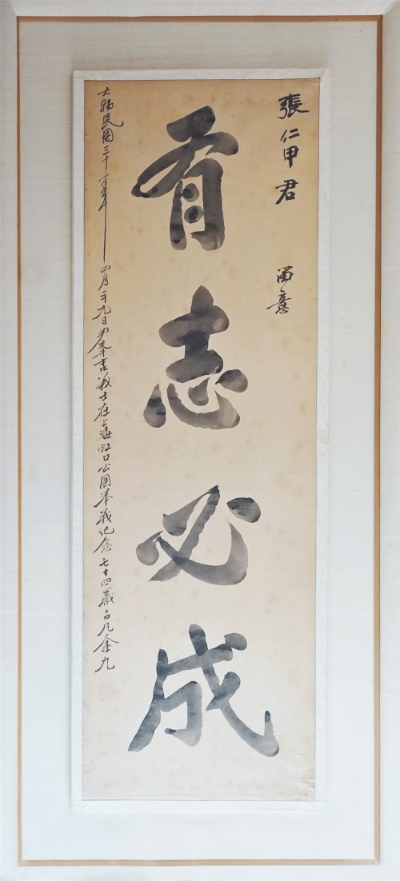 張仁甲君 留意
有志必成
大韓民國三十一年四月二十九日尹奉吉義士在上海虹口公園擧義記念七十四歲白凡金九